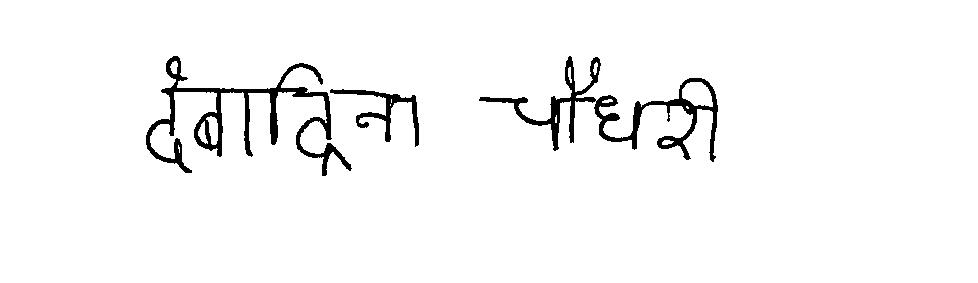 देबाद्रिना चौधरी